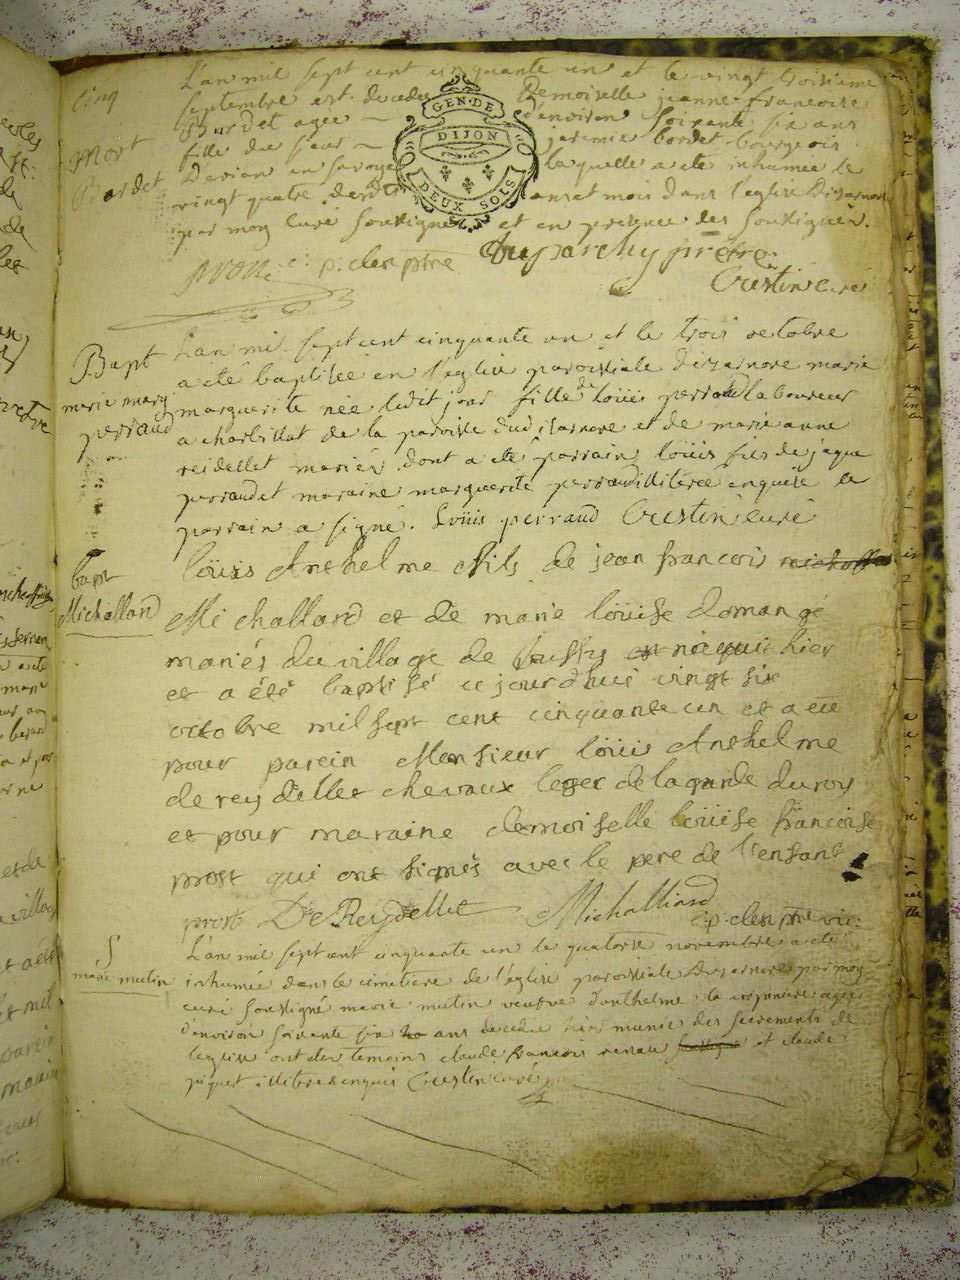 cinq
L'an mil sept cent cinquante un et le vingt troisieme
septembre est decedee Demoiselle jeanne francoise
GEN·DE
DIJON
DEUX SOLS
Mort
Bordet
Bordet agee d'environ soixante six ans
fille du sieur jeremie bordet bourgeois
en savoye laquelle a eté inhumee le
vingt quatre mois dans l'eglise Disarnore
par moy curé soussigné et en presence des soussignés.
p. clen ptre duparchy prêtre
Crestin curé
Bapt
marie marg
perraud
L'an mil sept cent cinquante un et le trois octobre
a eté baptisée en l'eglise paroissiale disarnore marie
marguerite née ledit jour fille de loüis perraud laboureur
a charbillat de la paroisse dud isarnore et de marie anne
reidellet mariés dont a eté parrain loüis fils de jaque
perraud et maraine marguerite perraud illiterée enquise le
parrain a signé. Loüis perraud Crestin curé
bapt
Michallard
loüis Anthelme fils de jean francois
Michallard et de marie loüise domangé
mariés du village de naquit hier
et a été baptisé ce jourd'hui vingt six
octobre mil sept cent cinquante un et a eu
pour parein Monsieur loüis Anthelme
de reydellet chevaux leger de la garde du roy
et pour maraine demoiselle loüise francoise
prost qui ont signés avec le pere de l'enfant
prost DeReydellet Michalliard
p. clen ptre vic.
S
marie mutin
L'an mil sept cent cinquante un le quatorse novembre a eté
inhumée dans le cimetiere de l'église paroissiale Disarnore par moy
curé soussigné marie mutin veufve d'anthelme agée
d'environ soixante six ans decedée hier munie des secrements de
l'eglise ont eté temoins claude francois renau et claude
piquet illiterés enquis Crestin curé